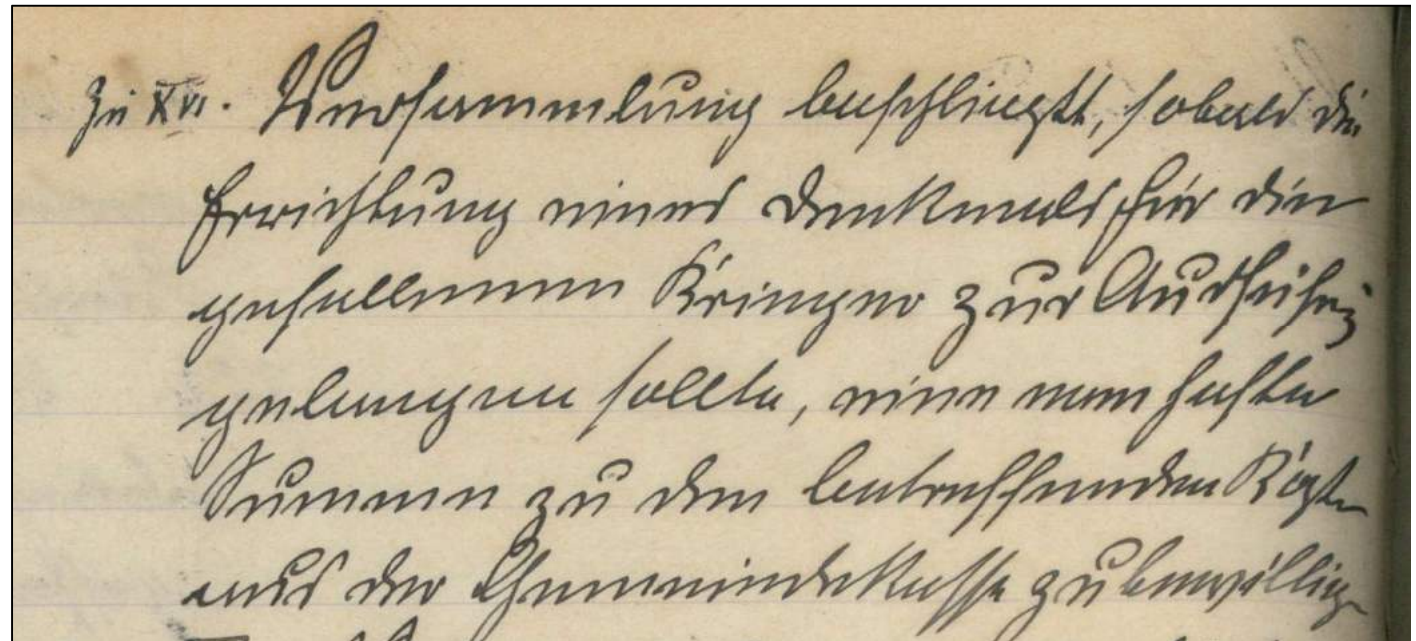 Zu XVI. Versammlung beschließt, sobald die
Errichtung eines Denkmals für die
gefallenen Krieger zur Ausführg
gelangen sollte, eine namhafte
Summe zu den betreffenden Kosten
aus der Gemeindekasse zu bewillig